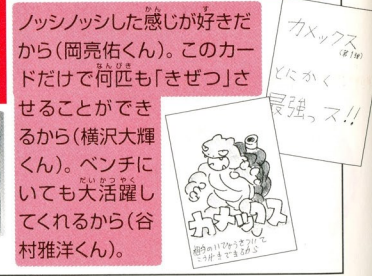 ノッシノッシした感じが好きだ
から(岡亮佑くん)。このカー
ドだけで何匹も「きぜつ」さ
せることができ
るから(横沢大輝
くん)。ベンチに
いても大活躍し
てくれるから(谷
村雅洋くん)。
カメックス
とにかく
最強っス!!
カメックス